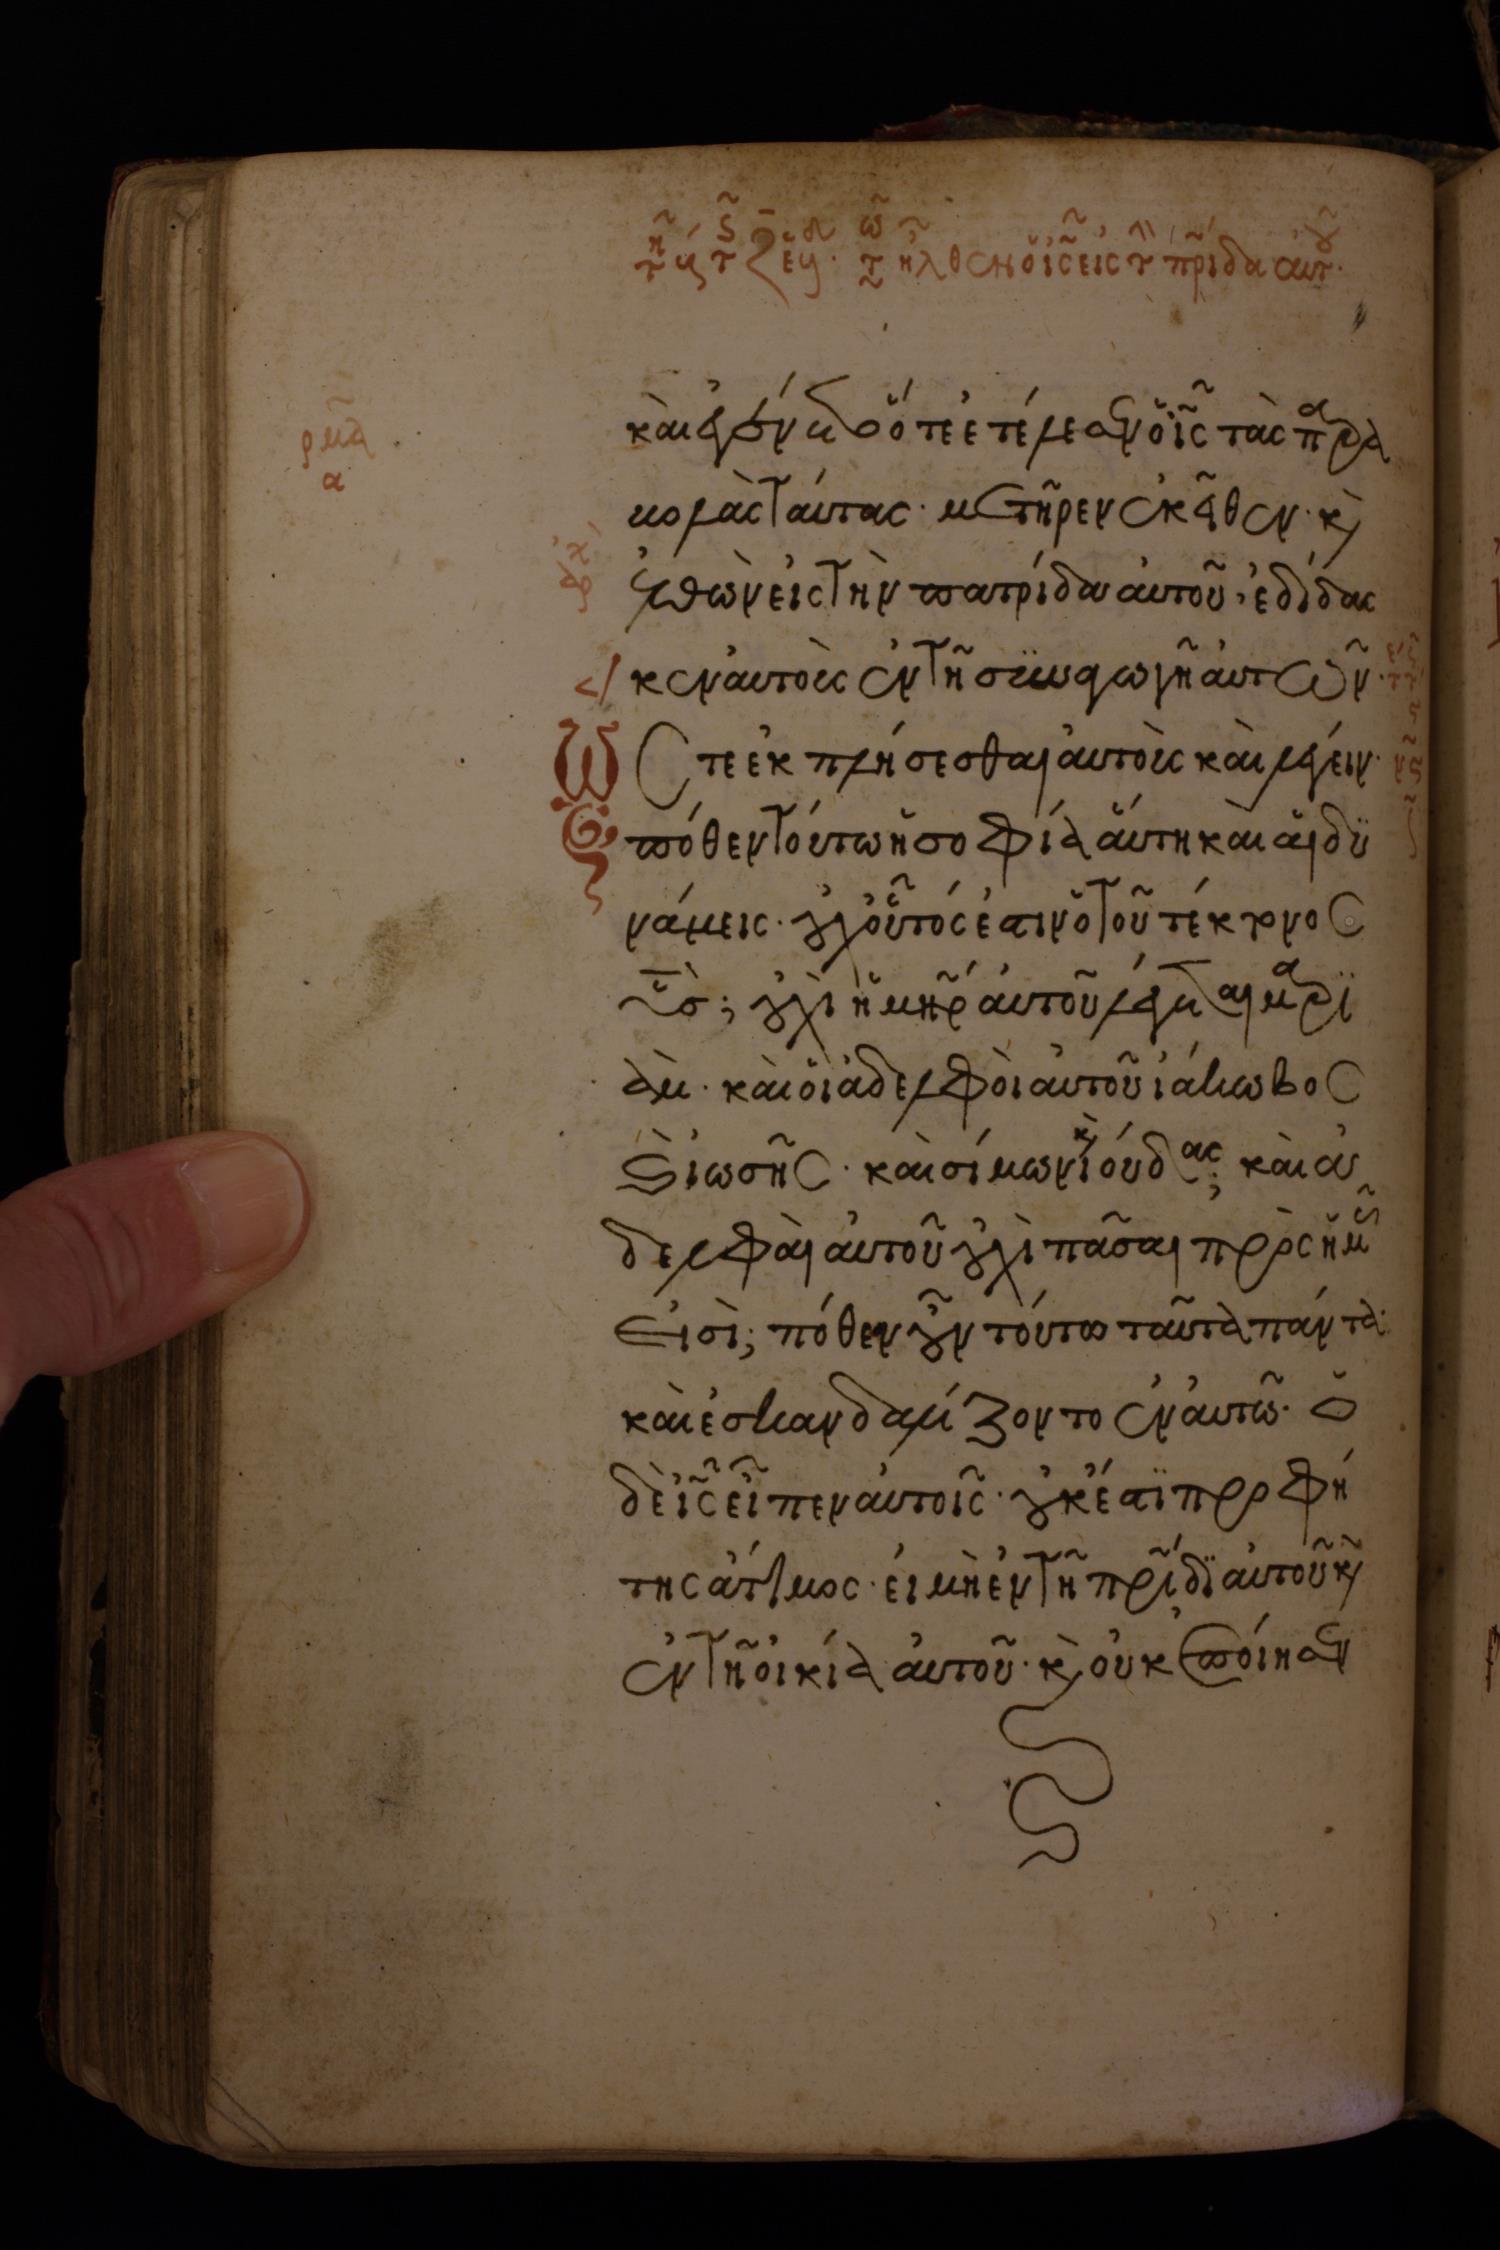 καὶ ἐγένετο ὅτε ἐτέλεσεν ὁ ις τὰς παρα
βολὰς ταύτας· μετῆρεν ἐκεῖθεν· κὶ
ἐλθὼν εἰς τὴν πατρίδα αὐτοῦ, ἐδίδας
κεν αὐτοὺς ἐν τῆ συναγωγῆ αὐτῶν·
ὥςτε ἐκπλήσεσθαι αὐτοὺς καὶ λέγειν·
πόθεν τούτω ἡ σοφία αὕτη καὶ αἱ δυ
νάμεις· οὐχ οὗτός ἐστιν ὁ τοῦ τέκτονος
υς; οὐχὶ ἡ μηρ αὐτοῦ λέγεται μαρι
ὰμ· καὶ οἱ ἀδελφοὶ αὐτοῦ ἰάκωβος
κὶ ἰωσῆς· καὶ σίμων κὶ ἰούδας; καὶ αἱ ἀ
δελφαὶ αὐτοῦ οὐχὶ πᾶσαι πρὸς ἡμᾶς
εἰσὶ; πόθεν οὖν τούτω ταῦτα πάντα·
καὶ ἐσκανδαλίζοντο ἐν αὐτῶ· ὁ
δὲ ις εἶπεν αὐτοῖς· οὐκ ἔστι προφή
της ἄτιμος· εἰ μὴ ἐν τῆ πρίδι αὐτοῦ κὶ
ἐν τῆ οἰκία αὐτοῦ· κὶ οὐκ ἐποίησεν